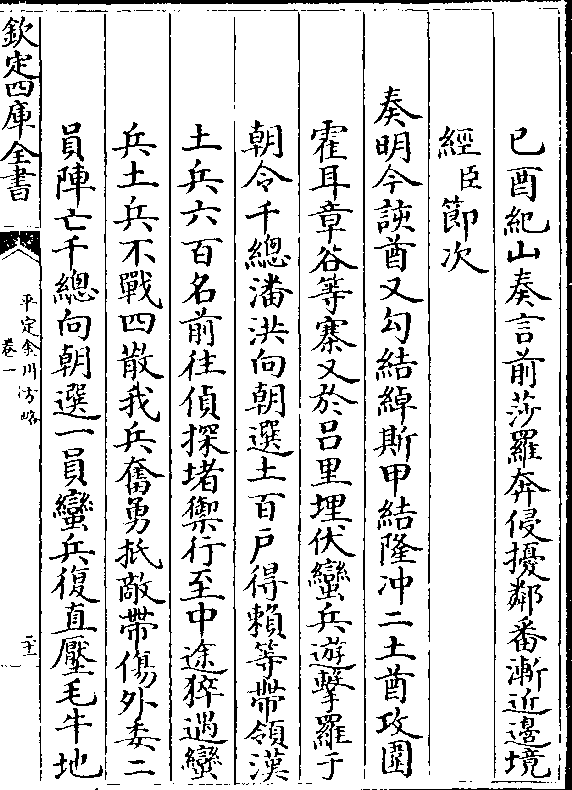 已酉紀山奏言前莎羅奔侵擾鄰番漸近邊境
經臣節次
奏明今該酋又勾結綽斯甲結隆冲二土酋攻圍
霍耳章谷等寨又於吕里埋伏蠻兵遊擊羅于
朝令千總潘洪向朝選土百戶得賴等帶領漢
土兵六百名前往偵探堵禦行至中途猝遇蠻
兵土兵不戰四散我兵奮勇抵敵帶傷外委二
員陣亡千總向朝選一員蠻兵復直壓毛牛地
欽定四庫全書
平定金川方略
卷一
二十